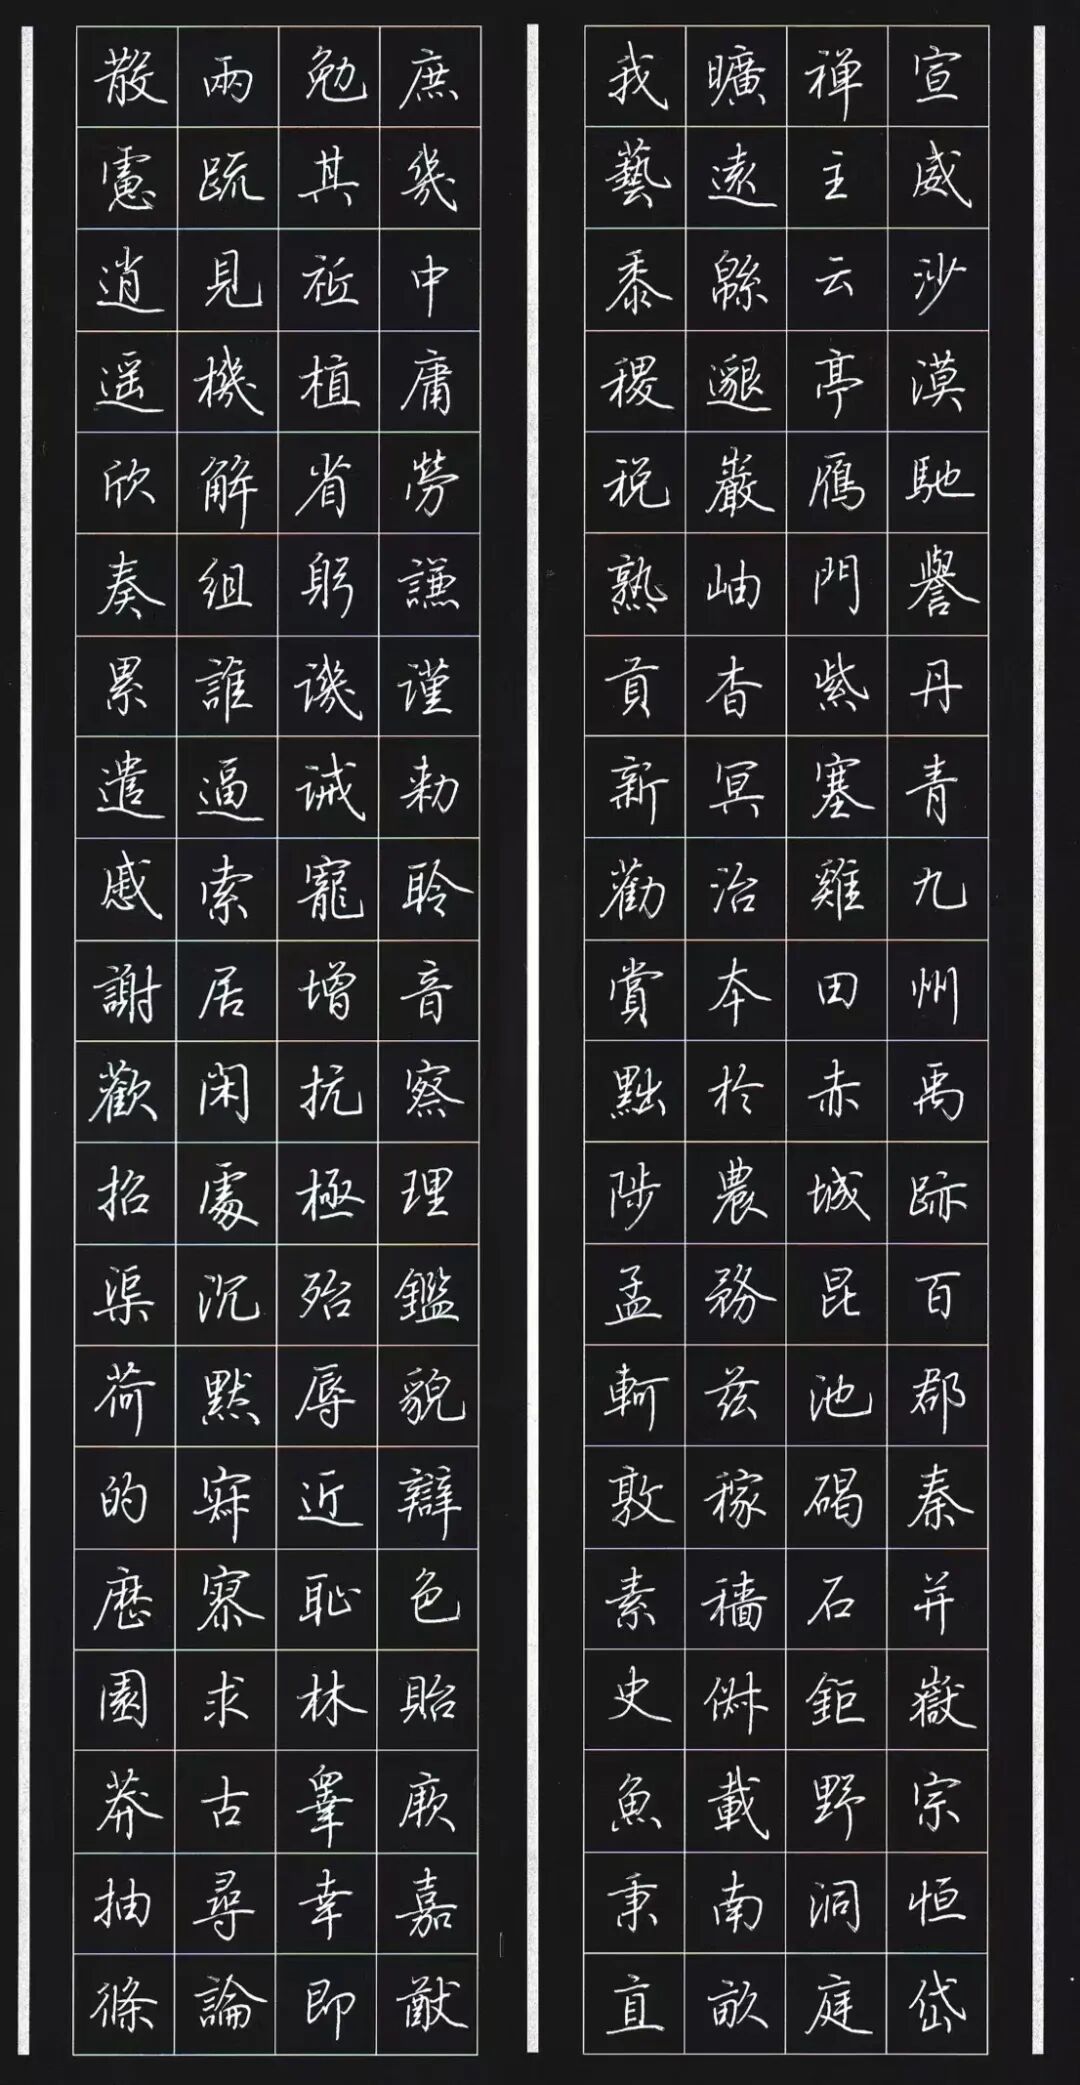 宣威沙漠馳譽丹青九州禹跡百郡秦并嶽宗恒岱
禪主云亭鴈門紫塞雞田赤城昆池碣石鉅野洞庭
曠遠緜邈巖岫杳冥治本於農務茲稼穡俶載南畝
我藝黍稷稅熟貢新勸賞黜陟孟軻敦素史魚秉直
庶幾中庸勞謙謹勅聆音察理鑑貌辯色貽厥嘉猷
勉其祗植省躬譏誡寵增抗極殆辱近恥林睾幸即
兩疏見機解組誰逼索居閑處沉默寂寥求古尋論
散慮逍遥欣奏累遣慼謝歡招渠荷的歷園莽抽條